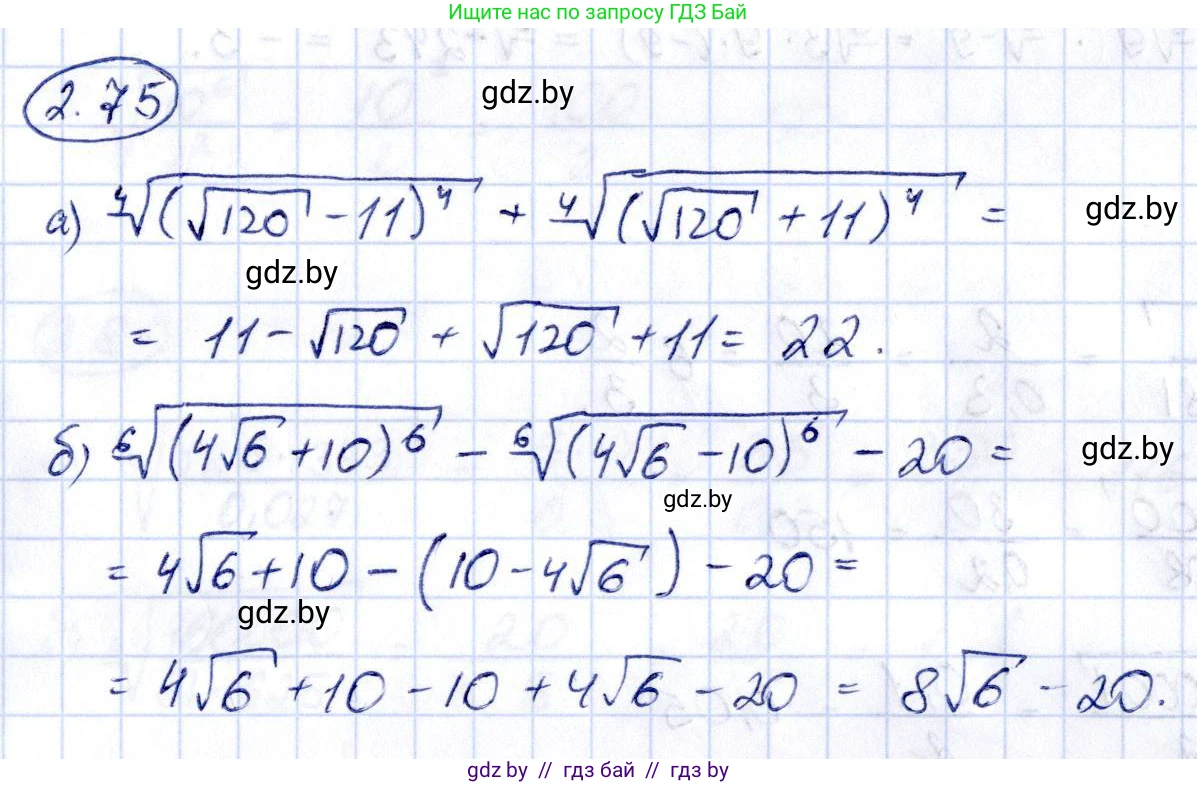 Ищите нас по запросу ГДЗ Бай
2.75
gdz.by
а) ⁴√(√120 - 11)⁴ + ⁴√(√120 + 11)⁴ =
gdz.by
gdz.by
= 11 - √120 + √120 + 11 = 22.
б) ⁶√(4√6 + 10)⁶ - ⁶√(4√6 - 10)⁶ - 20 =
gdz.by
gdz.by
= 4√6 + 10 - (10 - 4√6) - 20 =
gdz.by
= 4√6 + 10 - 10 + 4√6 - 20 = 8√6 - 20.
gdz by // гдз бай // гдз by